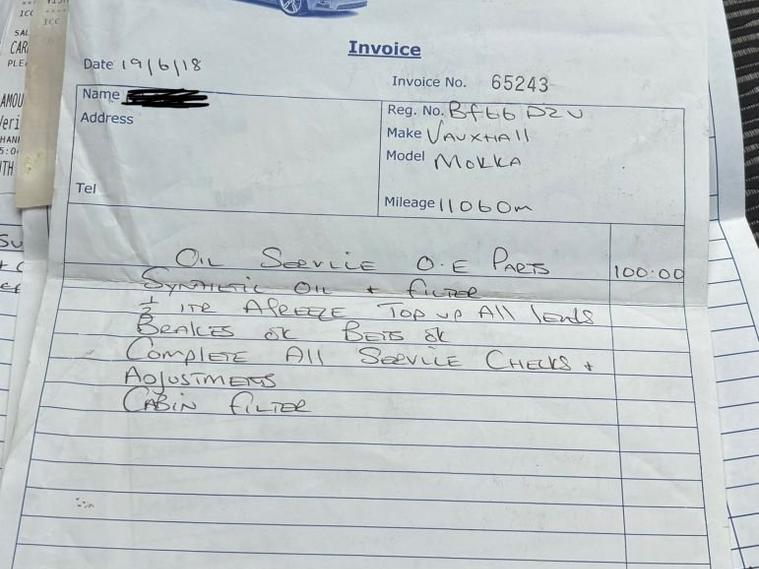 ICC
SAL
CAR
PLEA
AMOU
Veri
5:0
ITH
ICC
Invoice
Date 19/6/18
Invoice No. 65243
Name
Address
Tel
Reg. No. Bf66 DZU
Make VAUXHAll
Model MOKKA
Mileage 11060m
OIL SERVICE O.E PARTS 100.00
SYNTHETIC OIL + FILTER
1/2 LTR AFREEZE TOP UP All levels
BRAKES OK BELTS OK
COMPLETE All SERVICE CHECKS +
ADJUSTMENTS
CABIN FILTER